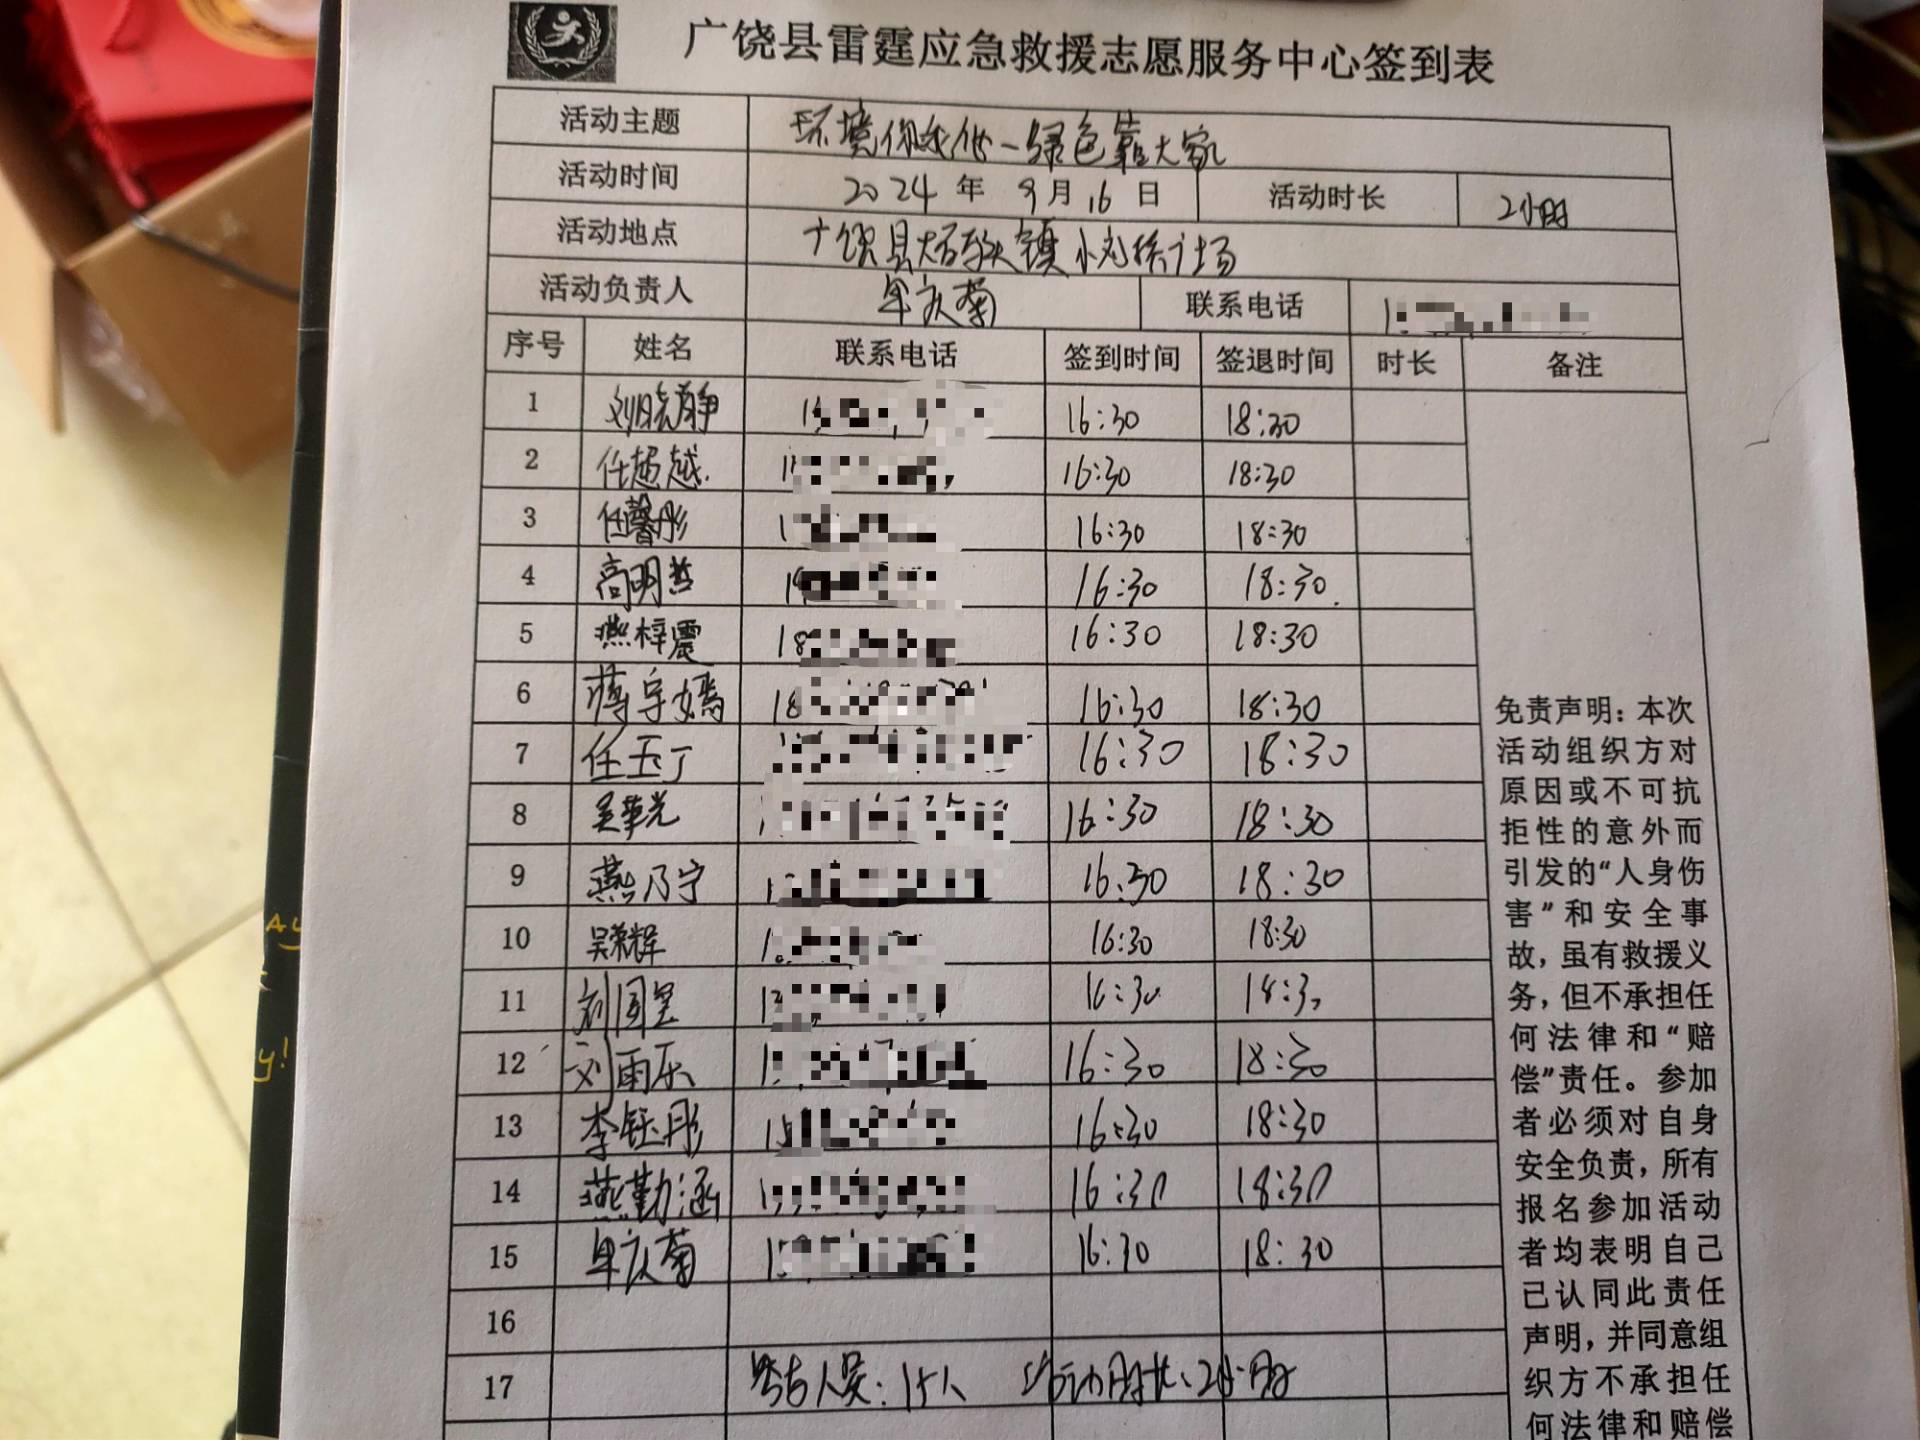 广饶县雷霆应急救援志愿服务中心签到表
活动主题 环境你我他一绿色靠大家
活动时间 2024 年 9 月 16 日 活动时长 2小时
活动地点 广饶县大码头镇
活动负责人 联系电话
序号 姓名 联系电话 签到时间 签退时间 时长 备注
1 刘晓静 16:30 18:30
2 任超越 16:30 18:30
3 任馨彤 16:30 18:30
4 高明哲 16:30 18:30
5 燕梓震 16:30 18:30
6 蒋宇嫣 16:30 18:30
7 任玉丁 16:30 18:30
8 吴华光 16:30 18:30
9 燕乃宁 16:30 18:30
10 吴荣辉 16:30 18:30
11 16:30 18:30
12 刘雨乐 16:30 18:30
13 李钰彤 16:30 18:30
14 燕勤涵 16:30 18:30
15 16:30 18:30
16
17 参与人员:15人 活动时长:2小时
免责声明：本次
活动组织方对
原因或不可抗
拒性的意外而
引发的“人身伤
害”和安全事
故，虽有救援义
务，但不承担任
何法律和“赔
偿”责任。参加
者必须对自身
安全负责，所有
报名参加活动
者均表明自己
已认同此责任
声明，并同意组
织方不承担任
何法律和赔偿